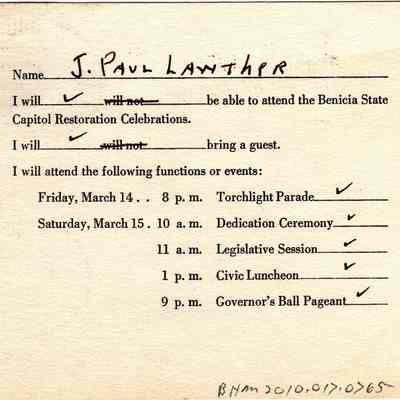 Name J. PAUL LAWTHER
I will ✓ will not be able to attend the Benicia State
Capitol Restoration Celebrations.
I will ✓ will not bring a guest.
I will attend the following functions or events:
Friday, March 14 . . 8 p. m. Torchlight Parade ✓
Saturday, March 15 . 10 a. m. Dedication Ceremony ✓
11 a. m. Legislative Session ✓
1 p. m. Civic Luncheon ✓
9 p. m. Governor's Ball Pageant ✓
BHAM 2010.017.0765